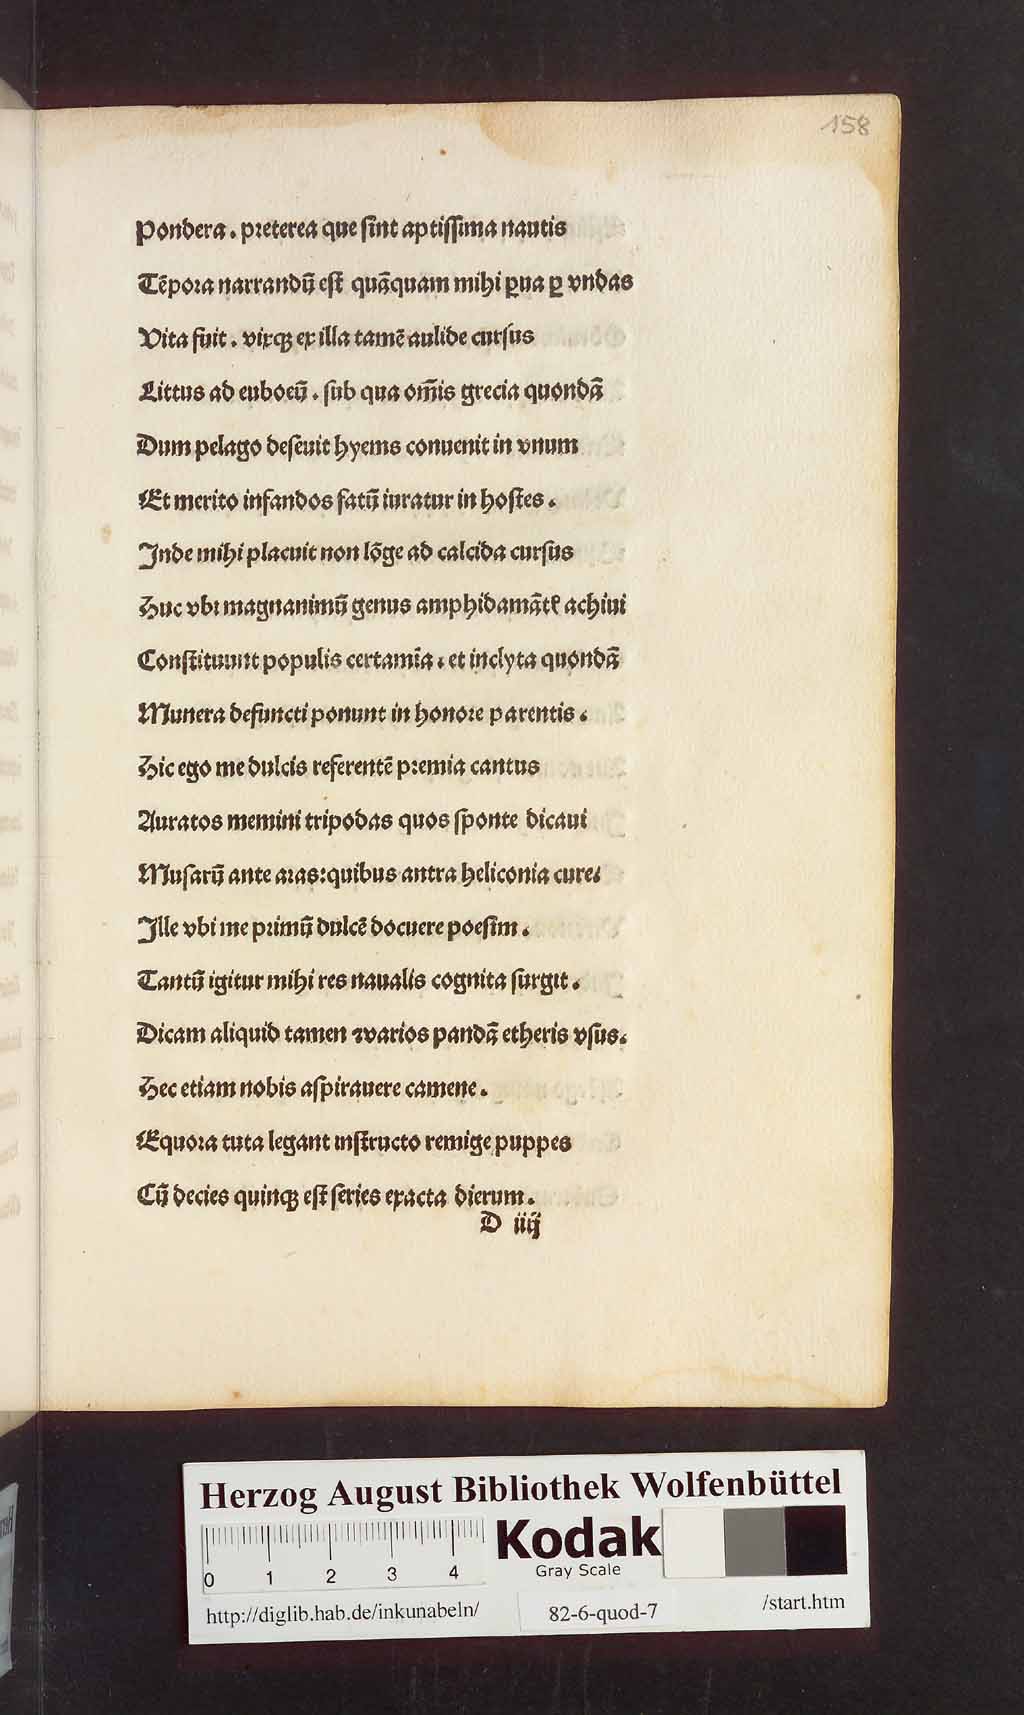 158
Pondera. preterea que sint aptissima nautis
Tēpora narrandū est quāquam mihi ꝑua ꝑ vndas
Vita fuit. vixqꝫ ex illa tamē aulide cursus
Littus ad euboeū. sub qua om̄is grecia quondā
Dum pelago deseuit hyems conuenit in vnum
Et merito infandos fatū iuratur in hostes.
Inde mihi placuit non lōge ad calcida cursus
Huc vbi magnanimū genus amphidamātꝭ achiui
Constituunt populis certamīa. et inclyta quondā
Munera defuncti ponunt in honore parentis.
Hic ego me dulcis referentē premia cantus
Auratos memini tripodas quos sponte dicaui
Musarū ante aras: quibus antra heliconia cure.
Ille vbi me primū dulcē docuere poesim.
Tantū igitur mihi res naualis cognita surgit.
Dicam aliquid tamen ⁊varios pandā etheris vsus.
Hec etiam nobis aspirauere camene.
Equora tuta legant instructo remige puppes
Cū decies quinqꝫ est series exacta dierum.
D iiij
Herzog August Bibliothek Wolfenbüttel
0 1 2 3 4
Kodak
Gray Scale
http://diglib.hab.de/inkunabeln/
82-6-quod-7
/start.htm